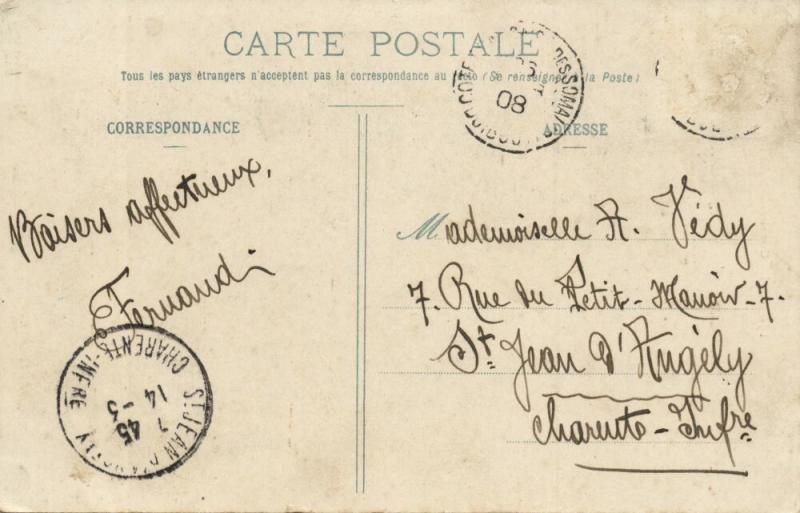 CARTE POSTALE
Tous les pays étrangers n'acceptent pas la correspondance au (Se renseigner la Poste)
CORRESPONDANCE
ADRESSE
08
Baisers affectueux,
Fernand
Mademoiselle A. Védy
7. Rue du Petit-Manoir-7.
St Jean d'Angély
Charente-Infre
ST JEAN D'ANGELY
CHARENTE-INFRE
7 45
14 - 3